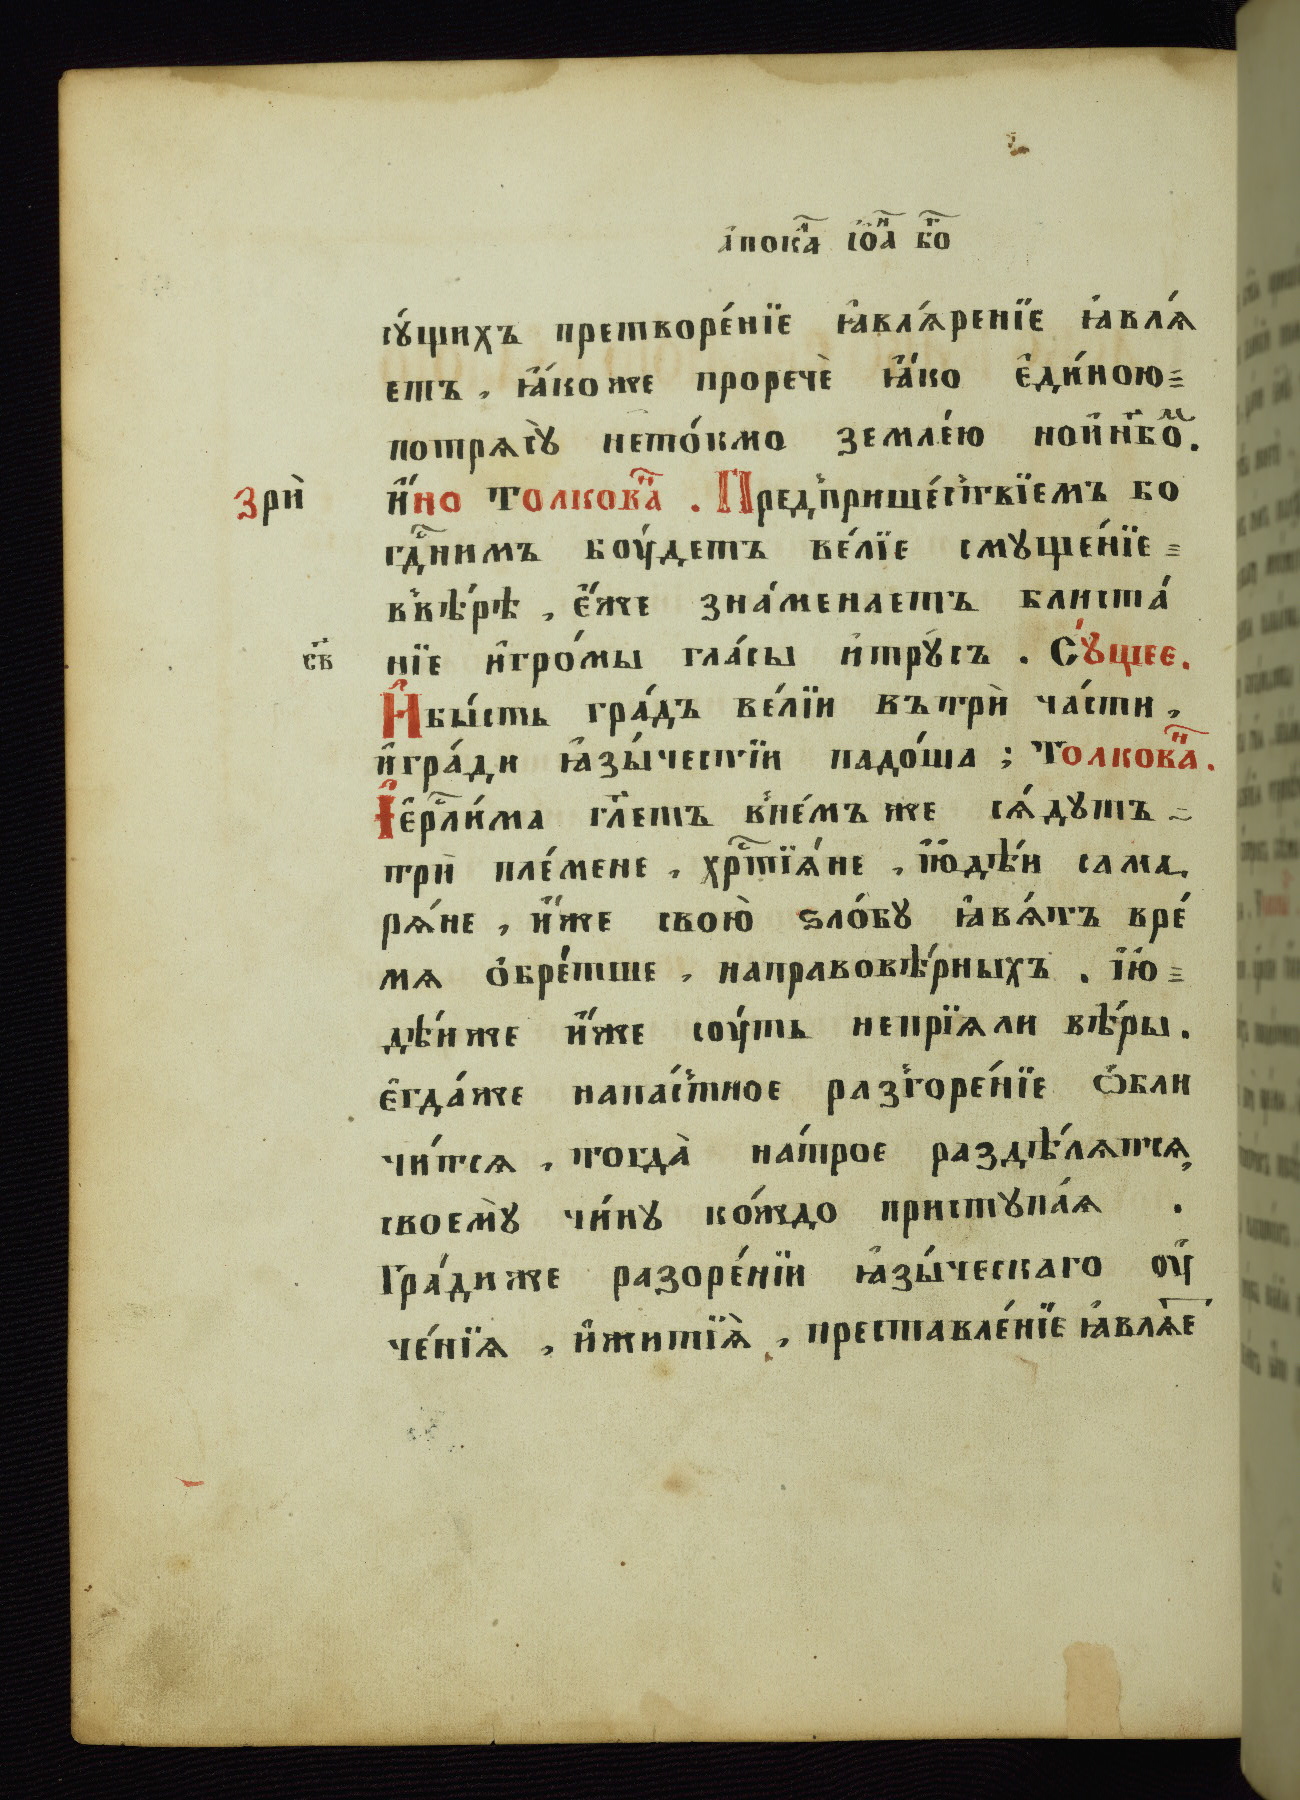 а҆пока́л і҆ѡ҆а́н бг҃о
сꙋ́щихъ претворе́нїе ꙗ҆влѧ́ренїе ꙗ҆влѧ́
етъ, ꙗ҆́коже проречѐ ꙗ҆́ко є҆ди́ною
потрѧсꙋ̀ нето́кмо землею но и҆ нб҃о.
зри̂ и҆́но Толкова́н. Предприше́ствїемъ бо
гд҃нимъ боу́детъ ве́лїе смꙋще́нїе
ввѣ́рѣ, є҆́же зна́менаетъ блиста́
св҃ нїе и҆гро́мы гла́сы и҆трꙋ́съ. Сꙋ́щее.
И҆бы́сть гра́дъ ве́лїи въ три̂ ча́сти,
и҆гра́ди ꙗ҆зы́чествїи падо́ша; Толкова́н.
І҆є҆рⷭ҇ли́ма гл҃етъ вне́мъже сѧ́дꙋтъ
три̂ пле́мене, хрⷭ҇тїѧ́не, і҆ю҆дѣ́и сама
рѧ́не, и҆́же свою̀ ѕло́бꙋ ꙗ҆вѧ́тъ вре́
мѧ ѻ҆бре́тше, направовѣ́рныхъ. і҆ю҆
дѣ́иже и҆́же соу́ть непрїѧли вѣ́ры.
є҆гда́же напа́стное разгоре́нїе ѡ҆бли
чи́тсѧ, тогда̀ на́трое раздѣ́лѧтсѧ,
своемꙋ̀ чи́нꙋ ко́ждо пристꙋпа́ѧ.
Гра́диже разоре́нїи ꙗ҆зы́ческаго оу҆
че́нїѧ, и҆житїѧ̀, преставле́нїе ꙗ҆влѧ́е